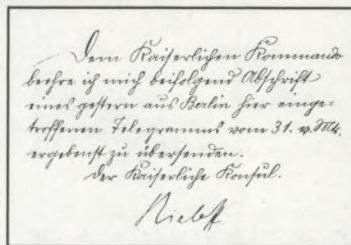 Dem Kaiserlichen Kommando
beehre ich mich beifolgend Abschrift
eines gestern aus Berlin hier einge-
troffenen Telegramms vom 31. v. Mts.
ergebenst zu übersenden.
Der Kaiserliche Konsul.